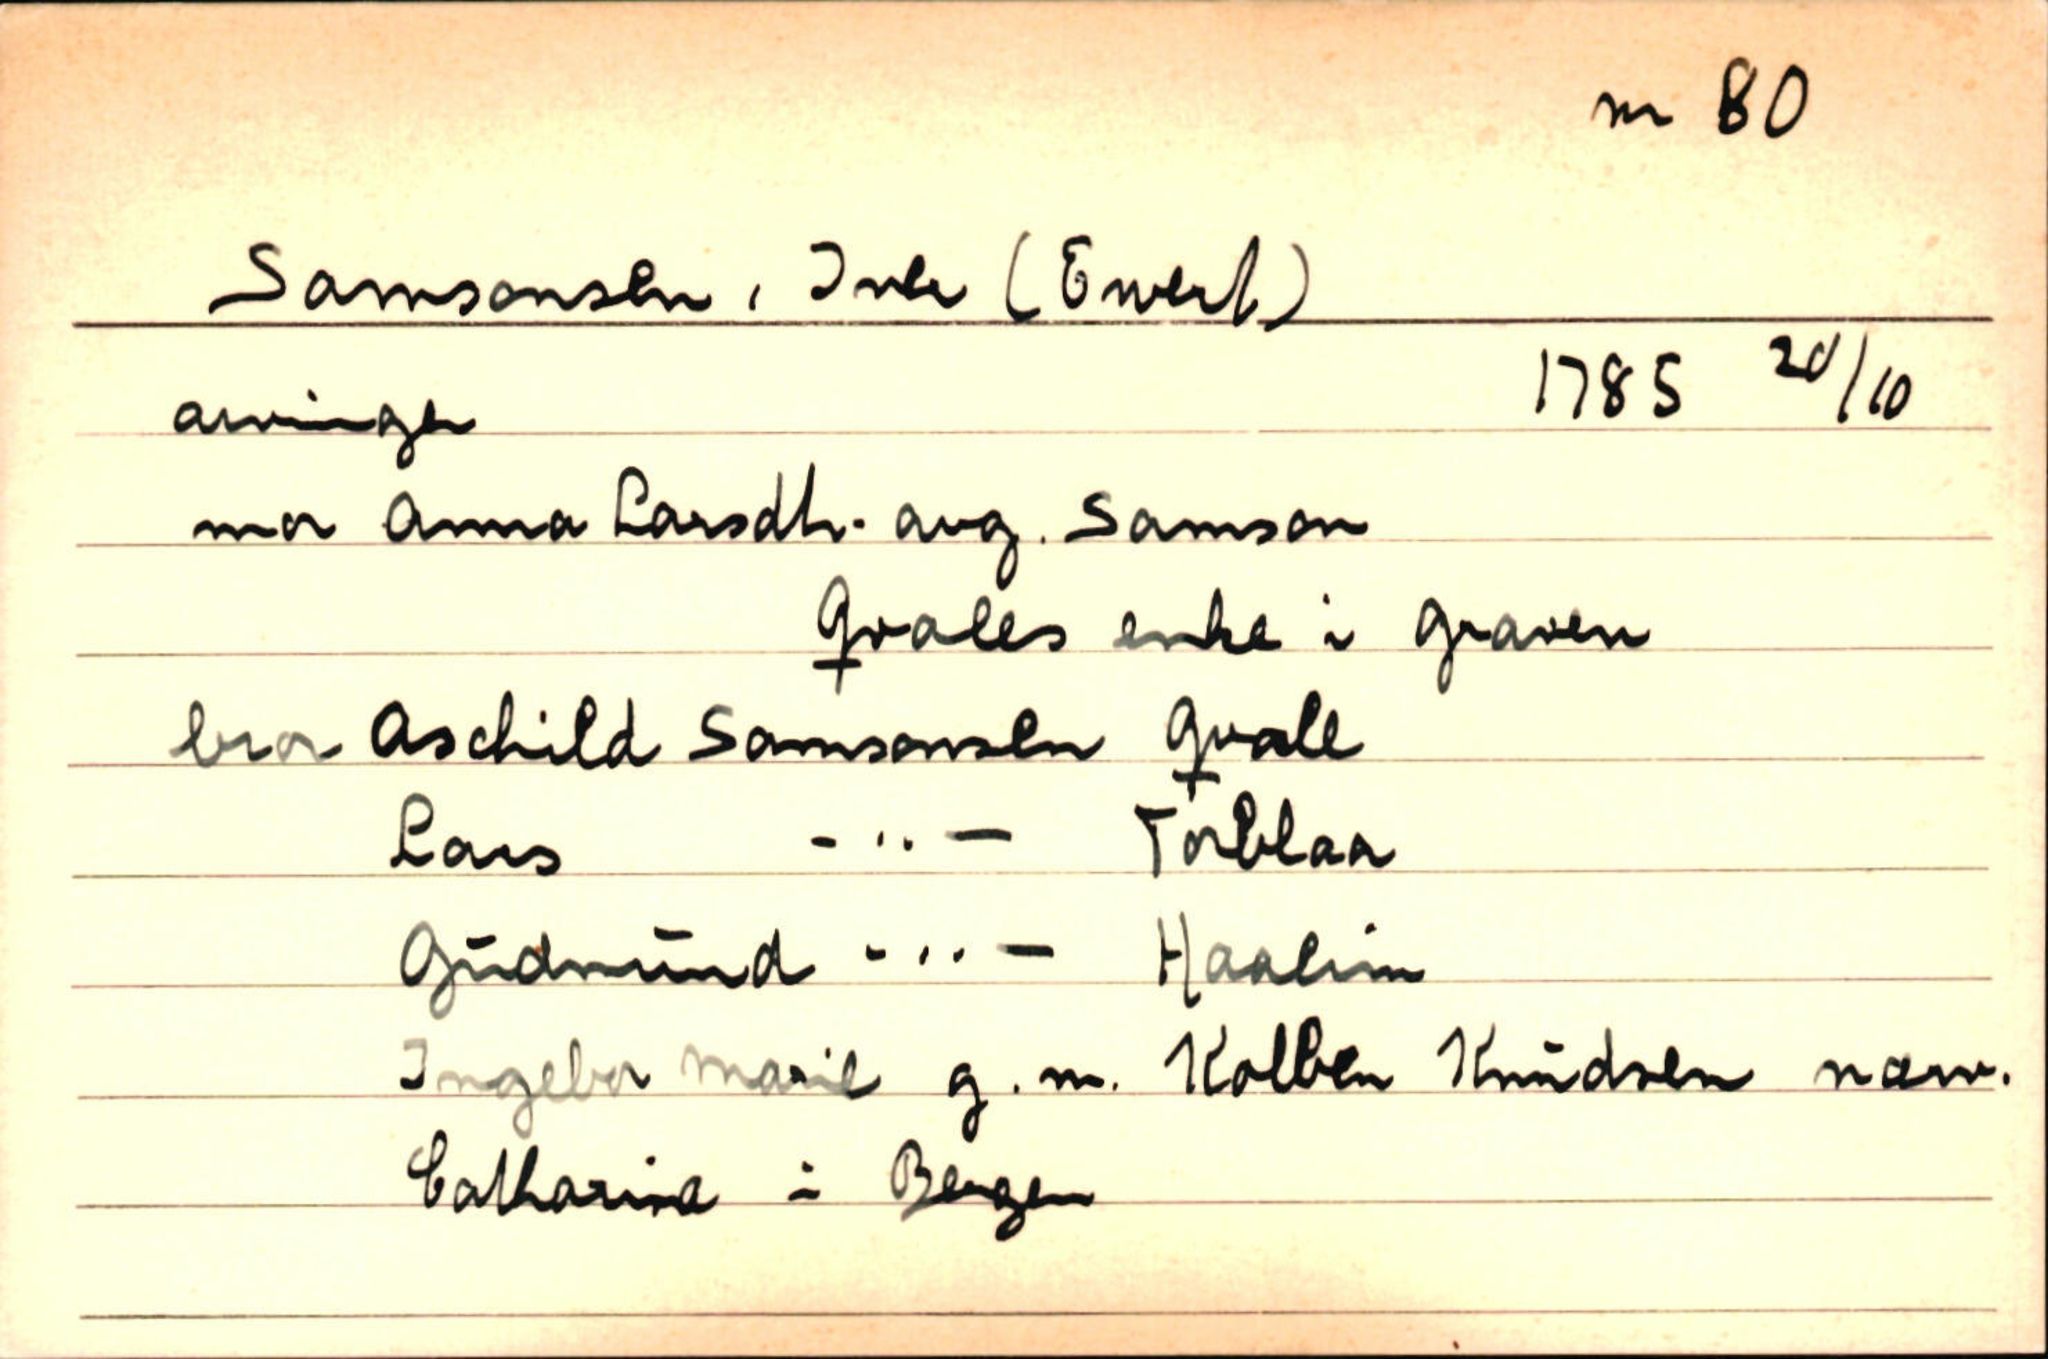 nr 80
Samsonsen, Iver (Ewert)
1785 20/10
arvinger
mor Anna Larsdtr. avg. Samson
Qvales enke i Graven
bror Aschild Samsonsen Qvale
Lars -"- Torblaa
Gudmund -"- Haaheim
Ingebor Marie g.m. Kolben Knudsen nærv.
Catharina i Bergen